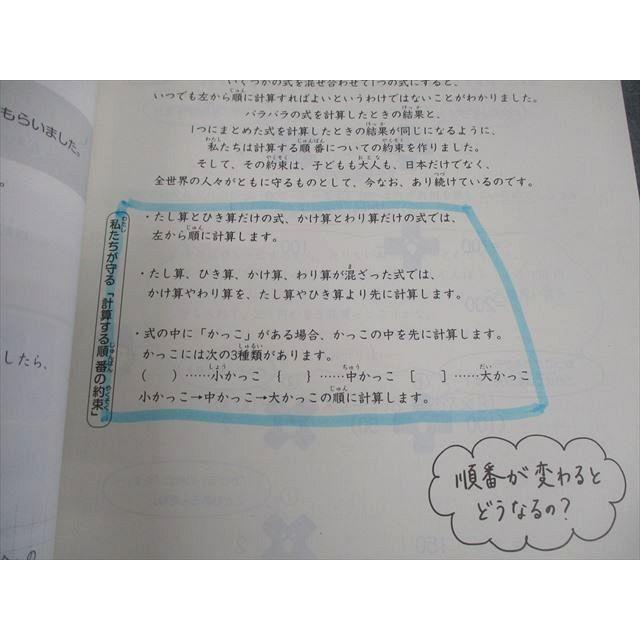 いくつかの式を混ぜ合わせて1つの式にすると、
いつでも左から順に計算すればよいというわけではないことがわかりました。
バラバラの式を計算したときの結果と、
1つにまとめた式を計算したときの結果が同じになるように、
私たちは計算する順番についての約束を作りました。
そして、その約束は、子どもも大人も、日本だけでなく、
全世界の人々がともに守るものとして、今なお、あり続けているのです。
私たちが守る「計算する順番の約束」
・たし算とひき算だけの式、かけ算とわり算だけの式では、
左から順に計算します。
・たし算、ひき算、かけ算、わり算が混ざった式では、
かけ算やわり算を、たし算やひき算より先に計算します。
・式の中に「かっこ」がある場合、かっこの中を先に計算します。
かっこには次の3種類があります。
( )……小かっこ { }……中かっこ [ ]……大かっこ
小かっこ→中かっこ→大かっこの順に計算します。
順番が変わると
どうなるの?
もらいました。
したら、